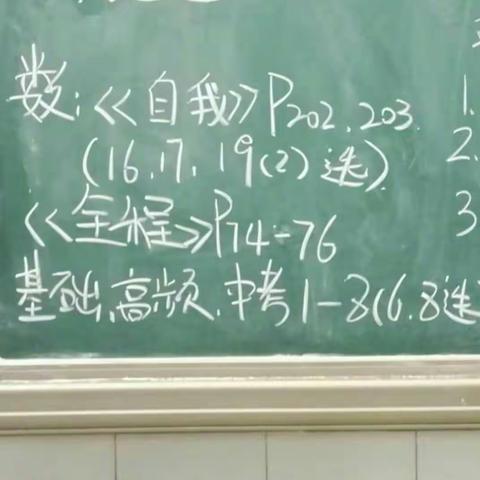 数:<<自我>>P202.203.
(16.17.19(2)选)
<<全程>>P74-76
基础,高频,中考1-8(6.8选
1.
2.
3